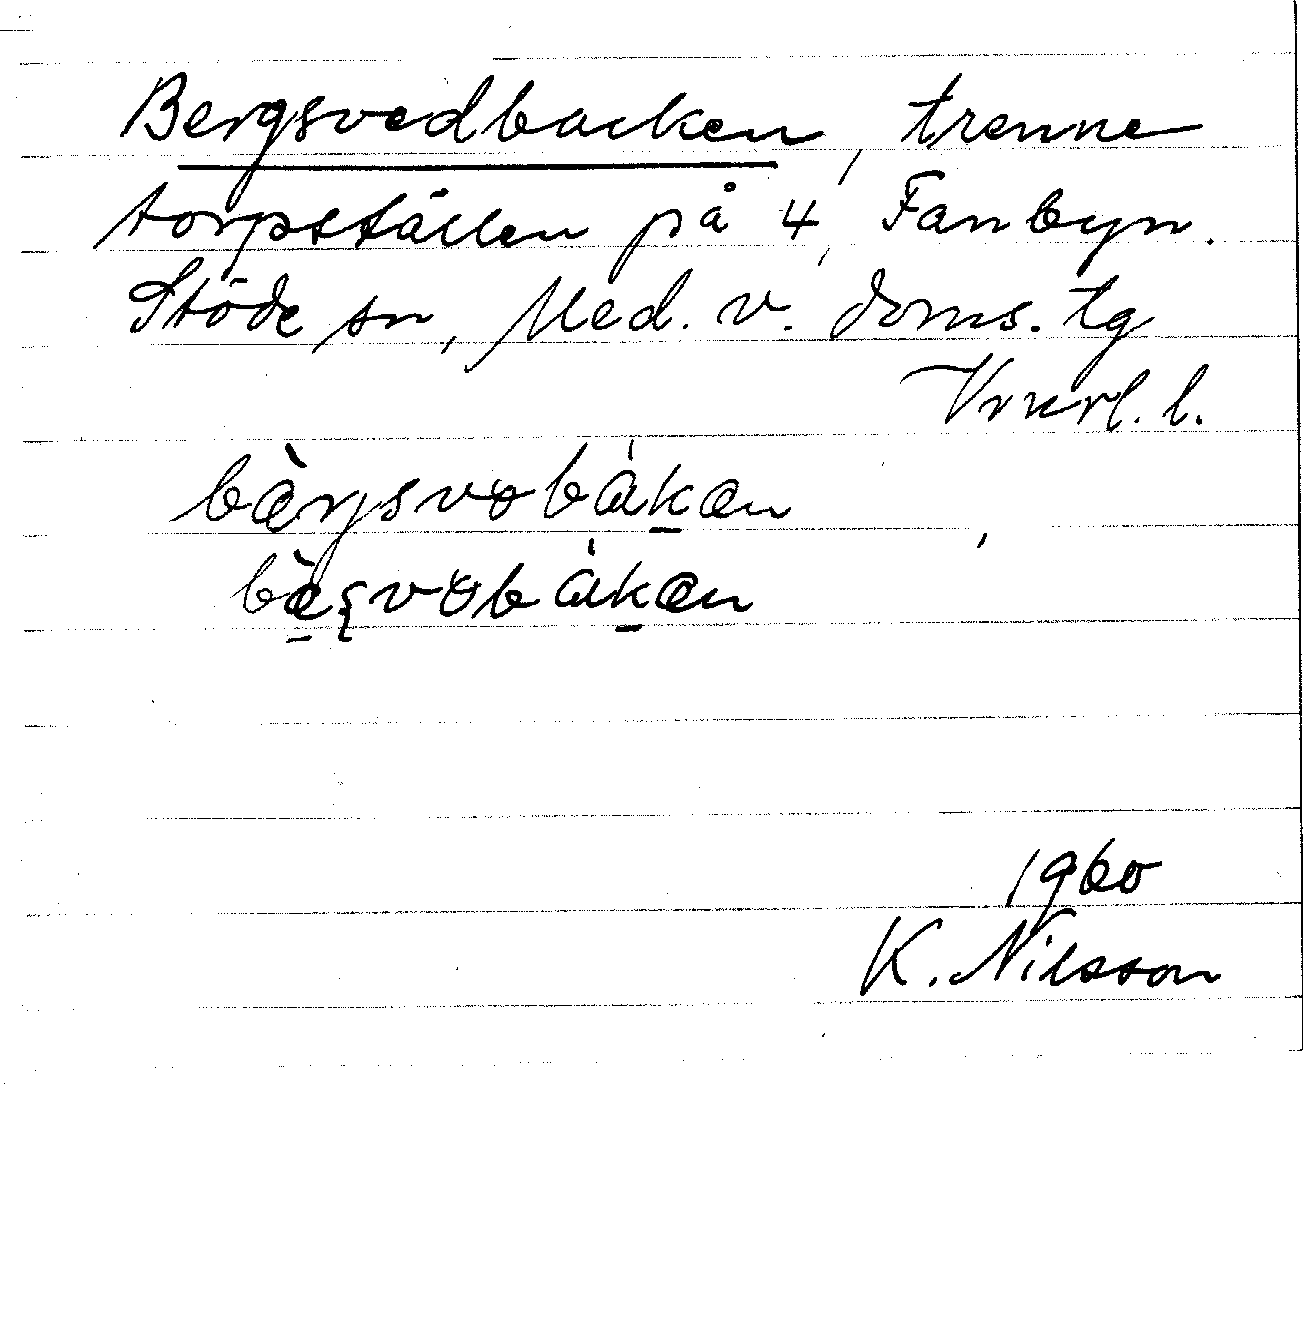 Bergsvedbacken, trenne
torpställen på 4, Fanbyn.
Stöde sn, Med. v. doms. tg
Vnrl. l.
bàrjsvobákan
bàsvobákan
1960
K. Nilsson